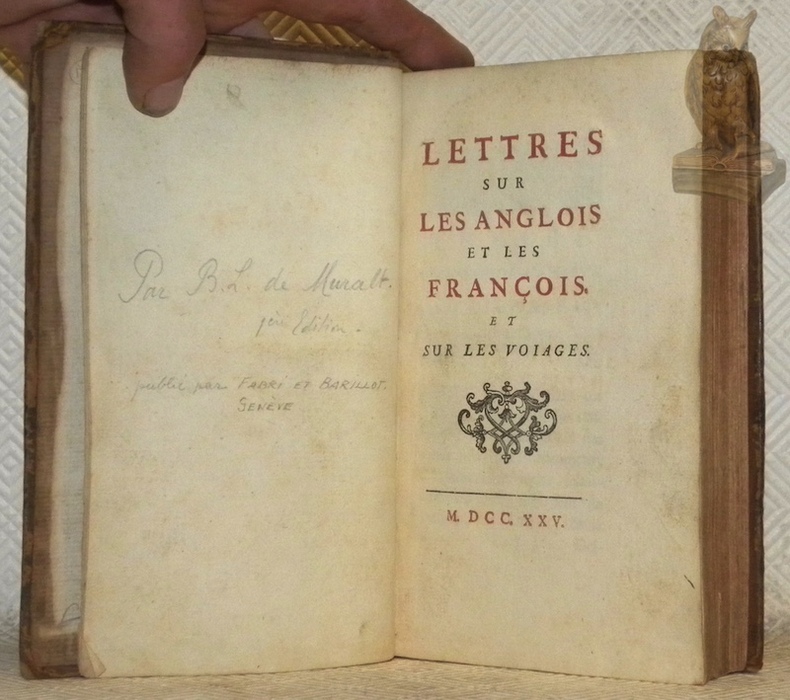 Par B. L. de Muralt.
1ère Edition.
publié par FABRI ET BARILLOT.
GENÈVE
LETTRES
SUR
LES ANGLOIS
ET LES
FRANÇOIS.
ET
SUR LES VOIAGES.
M. DCC. XXV.